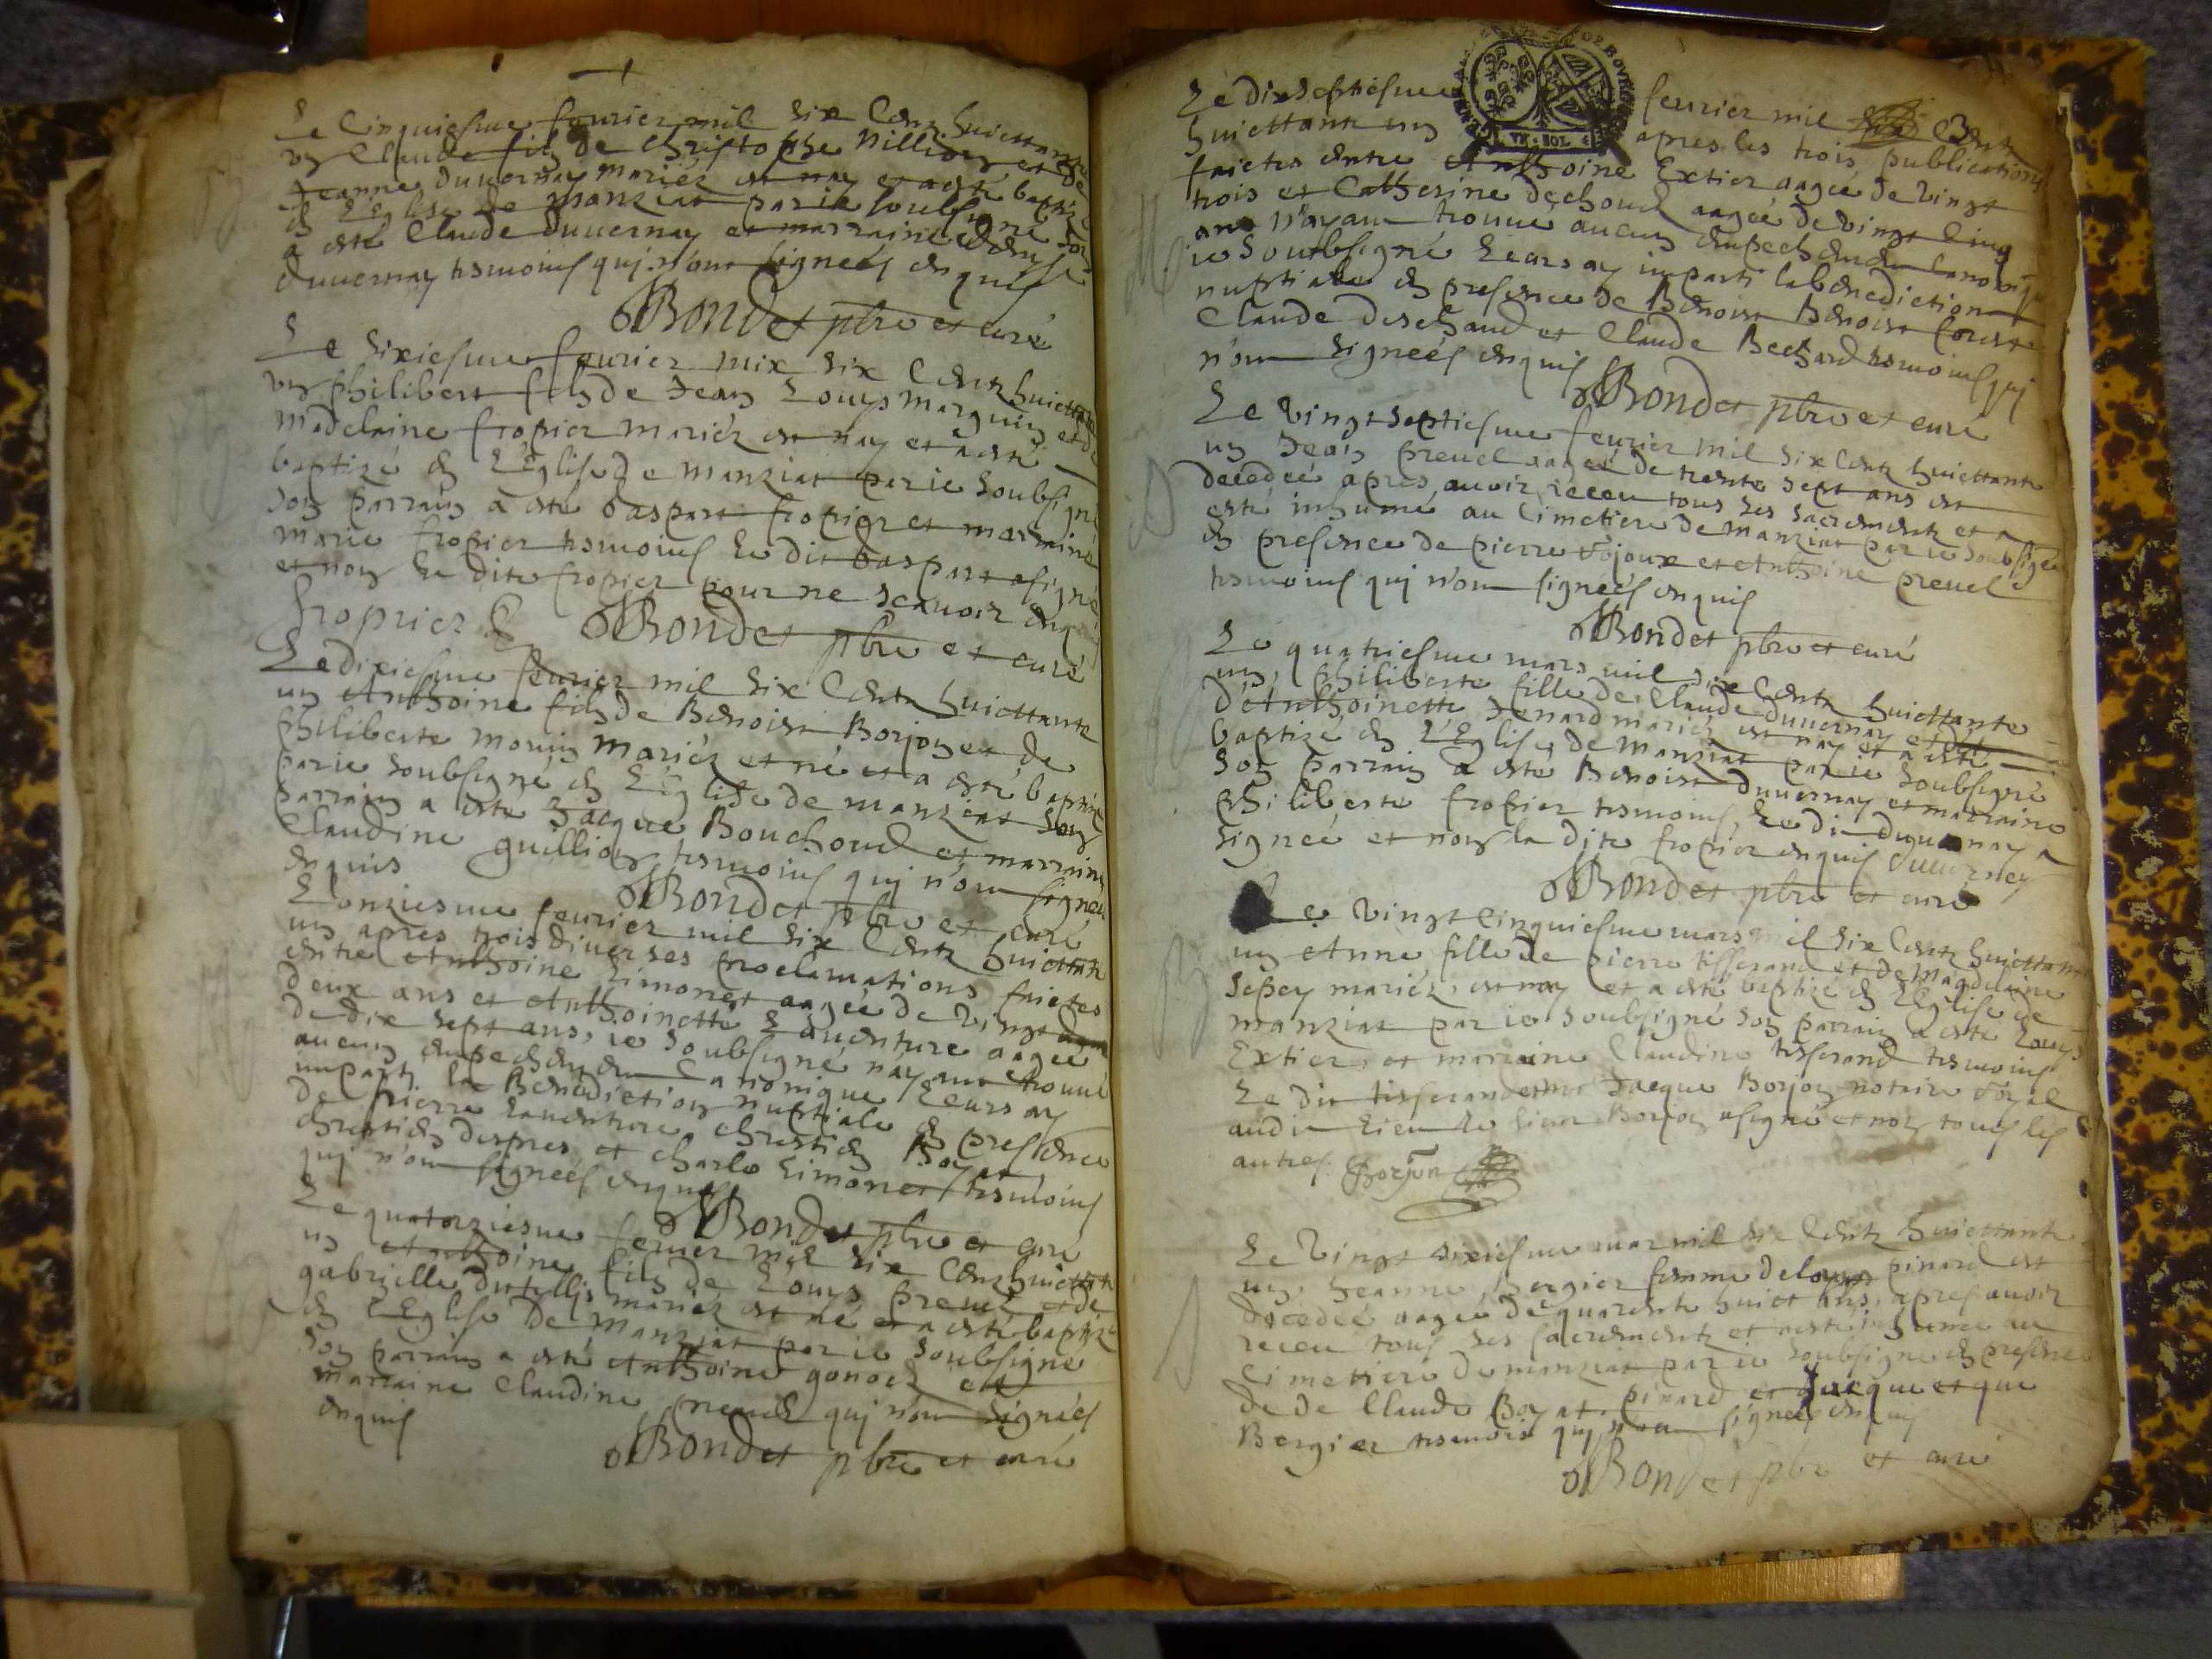 Le cinquiesme feurier mil six centz huicttante
un Claude filz de Christophle Nillion et de
Jeanne duuernay mariéz est nay et a esté baptizé
en l'Eglise de manziat par ie soubsigné son
a esté Claude duuernay et marraine
duuernay tesmoins qui n'ont signeés enquis
Bondet pbre et curé
Le sixiesme feurier mix six centz huicttante
un philibert filz de Jean Louys marguin et de
madelaine fropier mariéz est nay et a esté
baptizé en L'Eglise de manziat par ie soubsigné
son parrain a esté Gaspart fropier et marraine
marie fropier tesmoins le dit Gaspart a signé
et non la dite fropier pour ne scauoir enq
fropier Bondet pbre et curé
Le dixiesme feurier mil six centz huicttante
un Anthoine filz de Benoist Borjon et de
philiberte morin mariéz et né et a esté baptizé
par ie soubsigné en L'Eglise de manziat son
parrain a esté Jacque Bouchoud et marraine
Claudine guillion tesmoins qui n'ont signeé
enquis Bondet pbre et curé
L'onziesme feurier mil six centz huicttante
un apres trois diuerses proclamations faictes
entre Anthoine Limonet aagée de vingt
deux ans et Anthoinette Lauenture aagée
de dix sept ans, ie soubsigné nayant trouué
aucun empechement canonique Leurs ay
imparti la Benediction nuptiale en presence
de pierre Lauenture Chrestien Boyat
Chrestien despres et Charle Limonet tesmoins
qui n'ont signeés enquis
Bondet pbre et curé
Le quatorziesme feurier mil six centz huicttante
un Anthoine filz de Louys preuel et de
gabrielle dutillis mariéz est né et a esté baptizé
en L'Eglise de manziat par ie soubsigné
son parrain a esté Anthoine gonod et
marraine Claudine preuel qui n'ont signées
enquis
Bondet pbre et curé
Le dixseptiesme feurier mil centz
huicttante un apres les trois publications
faictes entre Anthoine Extier aagée de vingt
trois et Catherine dechoud aagée de vingt cinq
ans n'ayant trouué aucun empechement canonique
ie soubsigné Leurs ay imparti la benediction
nuptiale en presence de Benoist Benoist
Claude deschaud et Claude Bechard tesmoins qui
n'ont signeés enquis
Bondet pbre et curé
Le vingt septiesme feurier mil six centz huicttante
un Jean preuel aagé de trente sept ans est
decedeé apres auoir receu tous ses sacrementz et a
esté inhumé au cimetiere de manziat par ie soubsigné
en presence de pierre Fojoux et Anthoine preuel
tesmoins qui n'ont signeés enquis
Bondet pbre et curé
Le quatriesme mars mil six centz huicttante
un, philiberte fille de Claude duuernay et
d'Anthoinette Jenard mariéz est nay et a esté
baptizé en L'Eglise de manziat par ie soubsigné
son parrain a esté Benoist duuernay et marraine
philiberte fropier tesmoins, Le dit duuernay a
signeé et non la dite fropier enquis duuerney
Bondet pbre et curé
Le vingt cinquiesme mars mil six centz huicttante
un Anne fille de pierre tisserand et de magdelaine
Sepey mariéz, est nay et a esté baptizé en L'Eglise de
manziat par ie soubsigné son parrain a esté Louys
Extier, et marraine Claudine tisserand tesmoins
Le dit tisserand et Jacque Borjon notaire Royal
audit Lieu Le sieur Borjon a signé et non tous les
autres Borjon
Le vingt sixiesme mar mil six centz huicttante
un, Jeanne Bergier femme de pinard est
decedeé aagée de quarente huict ans, apres auoir
receu tous ses sacrementz et a esté inhumé au
Cimetiere de manziat par ie soubsigné en presence
de de Claude Boyat. pinard et Jacque et que
Bergier tesmoins qui n'ont signeés enquis
Bondet pbre et curé